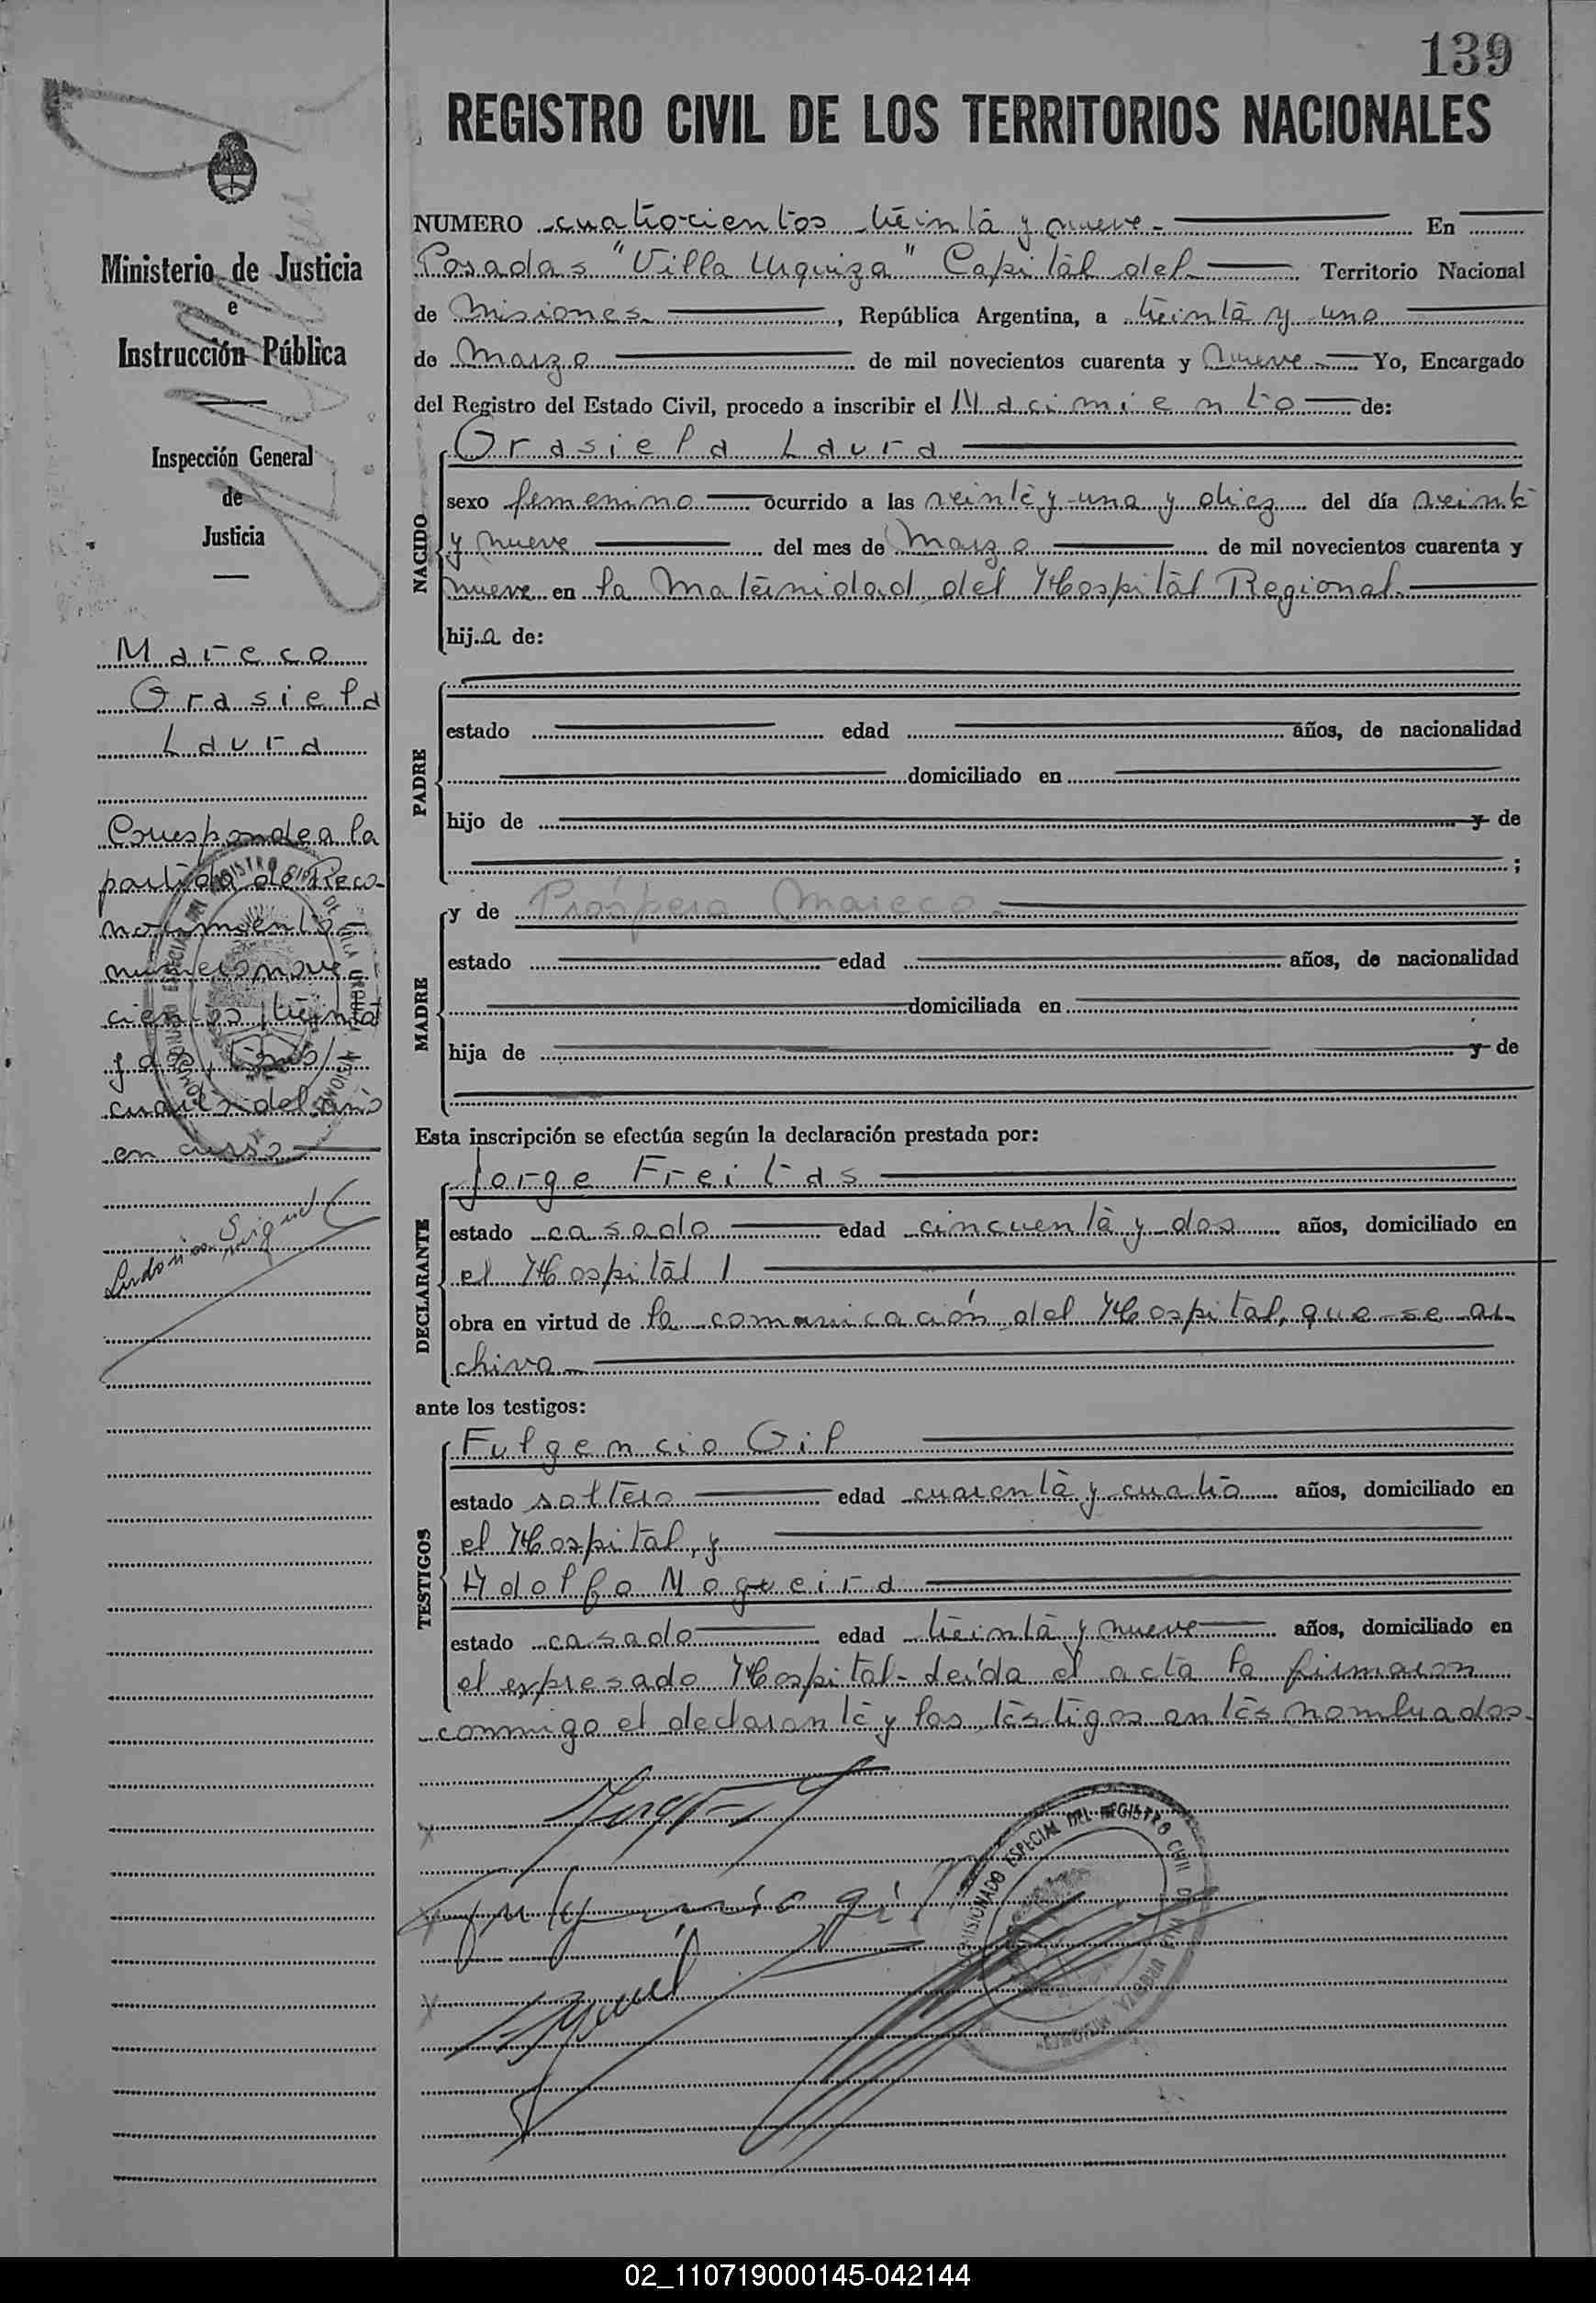 139
REGISTRO CIVIL DE LOS TERRITORIOS NACIONALES
Ministerio de Justicia
e
Instrucción Pública
Inspección General
de
Justicia
Mareco
Grasiela
Laura
Corresponde a la
partida de Reco-
nocimiento
numero nove
cientos treinta
y
del año
en curso
NUMERO cuatrocientos treinta y nueve - En
Posadas "Villa Urquiza" Capital del Territorio Nacional
de Misiones, República Argentina, a treinta y uno
de Marzo de mil novecientos cuarenta y nueve Yo, Encargado
del Registro del Estado Civil, procedo a inscribir el Nacimiento de:
NACIDO
Grasiela Laura
sexo femenino ocurrido a las veinte y una y diez del día veinte
y nueve del mes de Marzo de mil novecientos cuarenta y
nueve en la Maternidad del Hospital Regional.
hija de:
PADRE
estado edad años, de nacionalidad
domiciliado en
hijo de y de
;
MADRE
y de Próspera Mareco.
estado edad años, de nacionalidad
domiciliada en
hija de y de
Esta inscripción se efectúa según la declaración prestada por:
DECLARANTE
Jorge Freitas
estado casado edad cincuenta y dos años, domiciliado en
el Hospital
obra en virtud de la comunicación del Hospital, que se ar-
chiva
ante los testigos:
TESTIGOS
Fulgencio Gil
estado soltero edad cuarenta y cuatro años, domiciliado en
el Hospital, y
Adolfo Nogueira
estado casado edad treinta y nueve años, domiciliado en
el expresado Hospital - Leída el acta la firmaron
conmigo el declarante y los testigos antes nombrados.
Fulgencio Gil
COMISIONADO ESPECIAL DEL REGISTRO CIVIL DE VILLA URQUIZA MISIONES
02_110719000145-042144